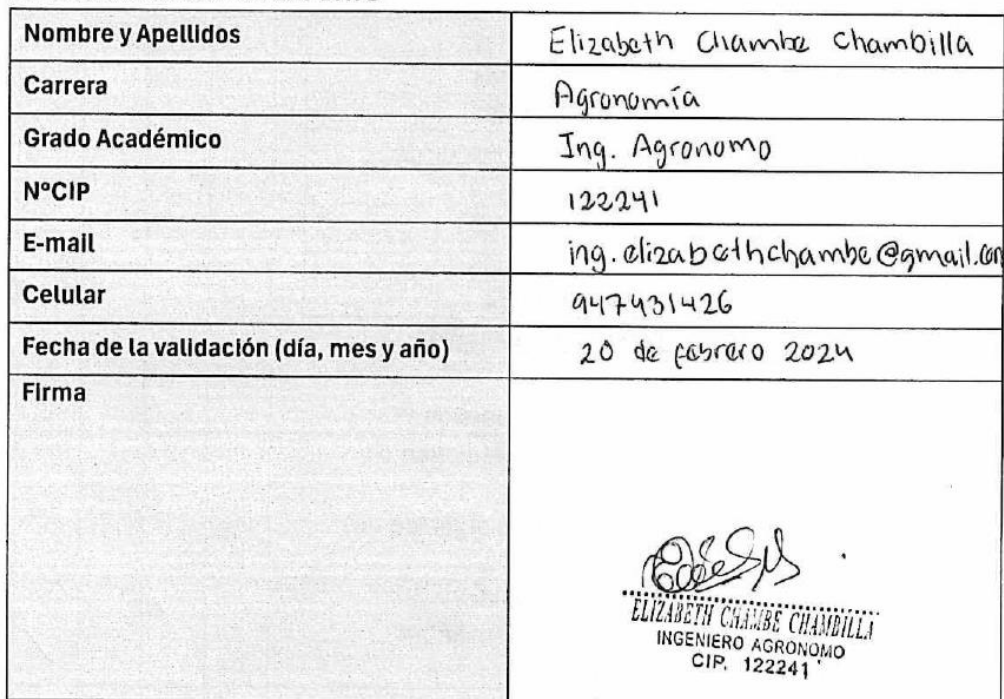 Nombre y Apellidos Elizabeth Chambe Chambilla
Carrera Agronomía
Grado Académico Ing. Agronomo
NºCIP 122241
E-mail ing.elizabethchambe@gmail.com
Celular 947431426
Fecha de la validación (día, mes y año) 20 de febrero 2024
Firma
ELIZABETH CHAMBE CHAMBILLA
INGENIERO AGRONOMO
CIP. 122241